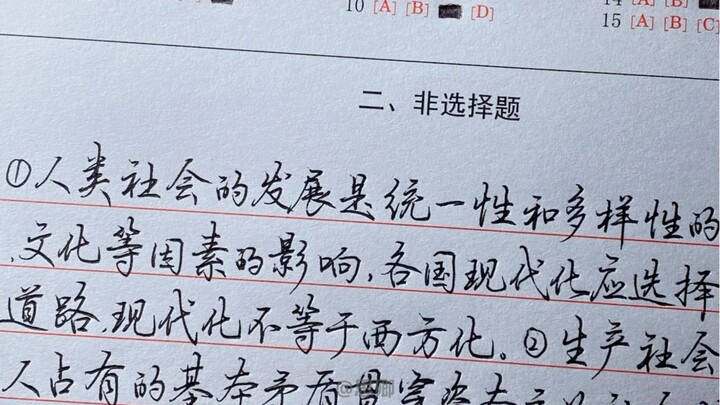 10 [A] [B] [D]
14 [A] [B]
15 [A] [B] [C]
二、非选择题
①人类社会的发展是统一性和多样性的
、文化等因素的影响,各国现代化应选择
道路,现代化不等于西方化。②生产社会
人占有的基本矛盾